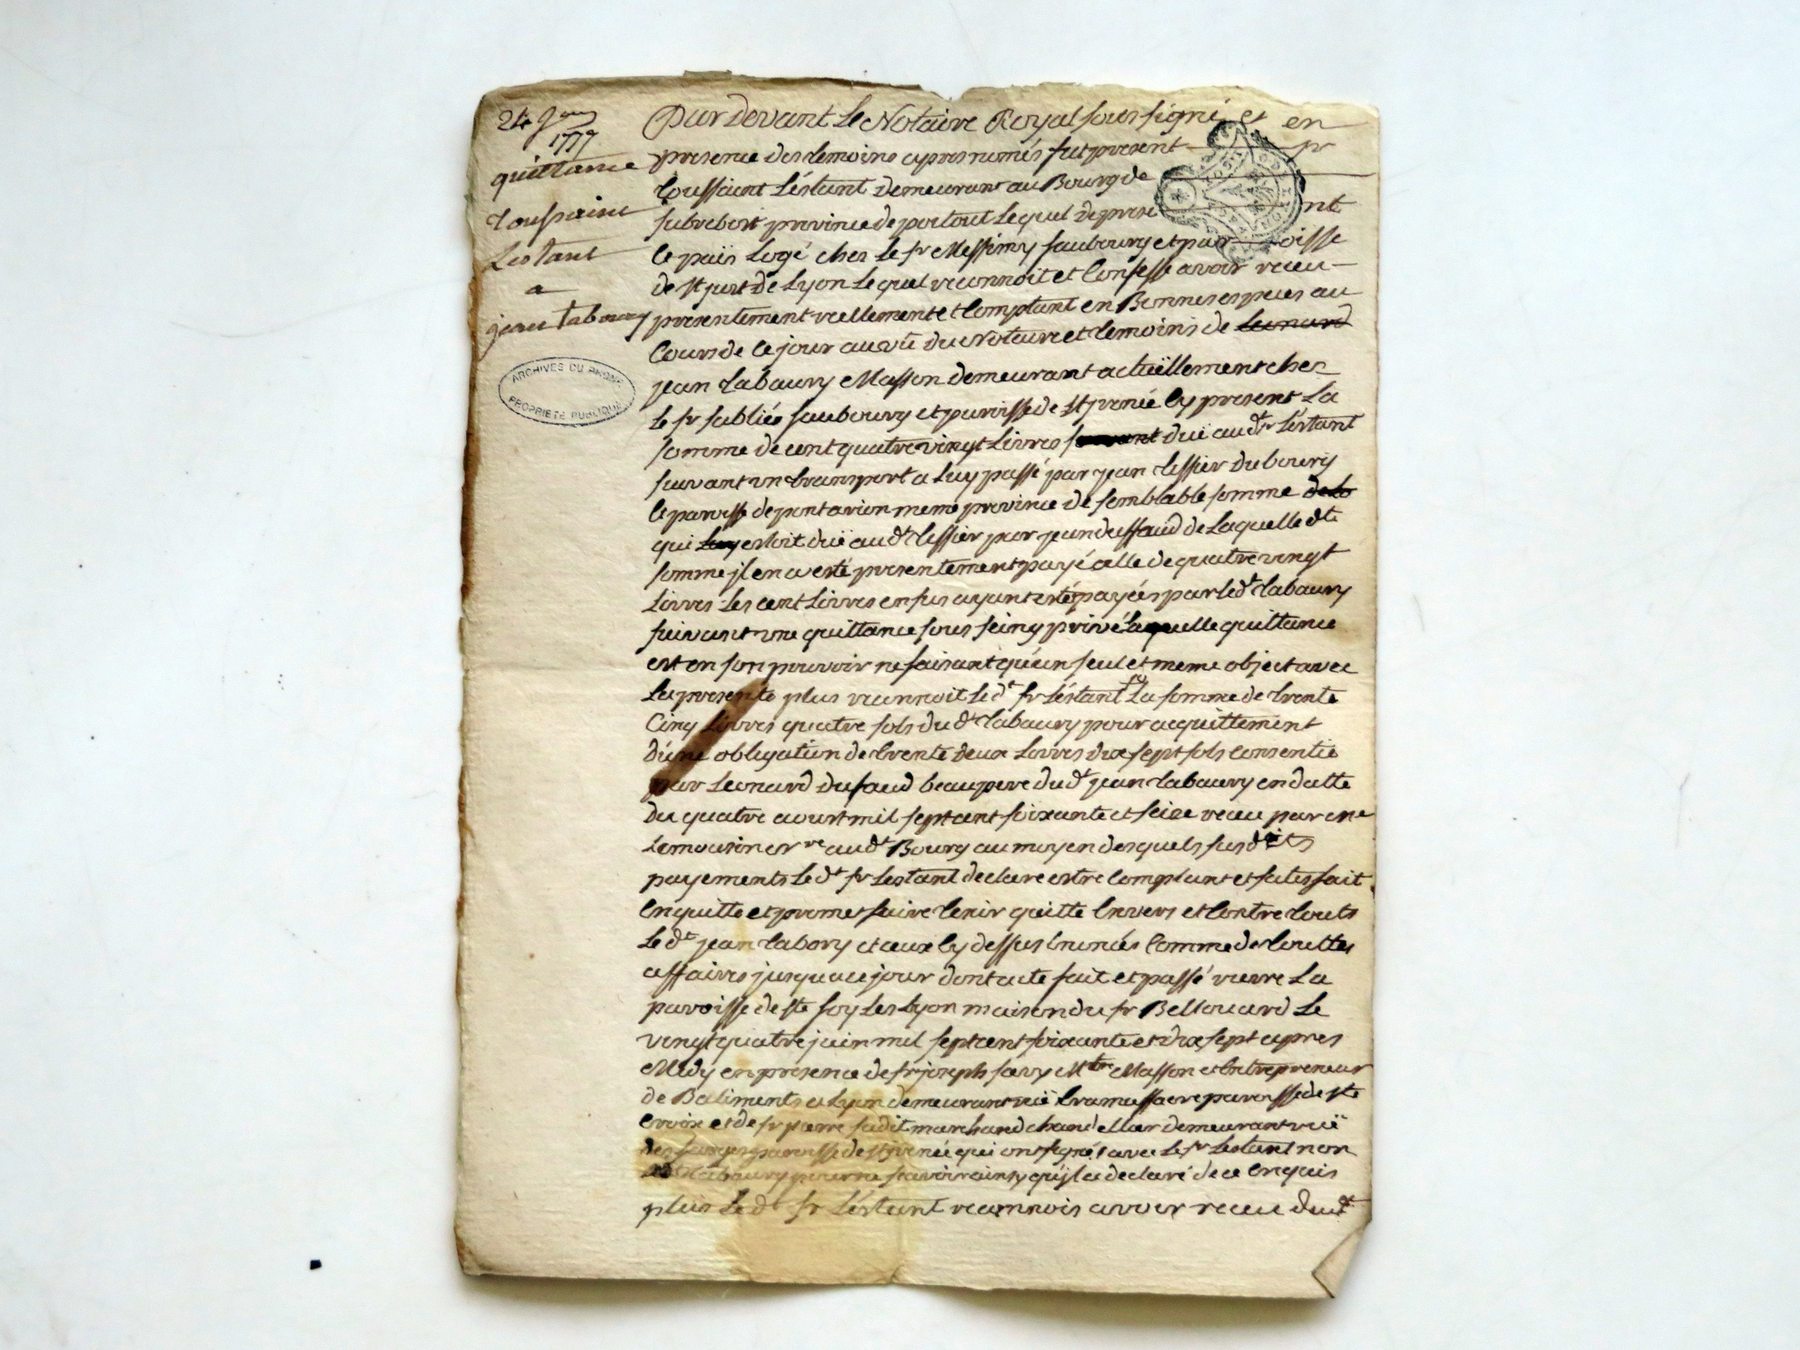 24 Juin
1777
quittance
toussaint
Lestant
a
jean tabaury
ARCHIVES DU RHONE
PROPRIETE PUBLIQUE
Pardevant Le Notaire Royal sous signé et en
presence des temoins cy apres només fut present sr
toussaint Léstant demeurant au Bourg de
province de poitout Lequel de prese nt
ce païs Logé ches Le sr Messimy faubourg et par oisse
de st just de Lyon Lequel reconnoit et Confesse avoir receu
presentement reellement et Comptant en Bonnes especes au
Cours de Ce jour au vû du Notaire et temoins de Leonard
jean tabaury Masson demeurant actuëllement ches
Le sr sabliés faubourg et paroisse de st irenée Cy present La
somme de cent quatre vingt Livres duë au dt sr Léstant
suivant un transport a Luy passé par jean tessier du bourg
et paroisse de pontarion meme province de semblable somme
qui Luy estoit duë au dt tessier par jean duffaud de Laquelle dte
somme jl en a esté presentement payé celle de quatre vingt
Livres Les cent Livres en sus ayant esté payées par Le dt tabaury
suivant une quittance sous seing privé Laquelle quittance
est en son pouvoir ne faisant qu'un seul et meme object avec
La presente plus reconnoit Le dt sr Léstant La somme de trente
Cinq Livres quatre sols du dt tabaury pour acquittement
d'une obligation de trente deux Livres dix sept sols consentie
par Leonard dufaud beaupere du dt jean tabaury en datte
du quatre aoust mil sept cent soixante et seize receu par me
Lemousin nre au dt Bourg au moyen desquels susdits
payements Le dt sr Lestant declare estre Comptant et satisfait
En quitte et promet faire tenir quitte Envers et Contre touts
Le dt jean tabory et ceux Cy dessus Enoncés Comme de touttes
affaires jusqua ce jour dont acte fait et passé riere La
paroisse de ste foy Les Lyon maison du sr Bellouard Le
vingt quatre juin mil sept cent soixante et dix sept apres
Midy en presence de sr joseph savy Mtre Masson et Entrepreneur
de Batiments a Lyon demeurant ruë tramassac paroisse de ste
croix et de sr pierre fadit marchand chandellier demeurant ruë
des farges paroisse de st irenée qui ont signés avec Le sr Lestant non
Le dt tabaury pour ne scavoir ainsy qu'jl a declaré de ce Enquis
plus Le dt sr Léstant reconnois avoir receu du dt